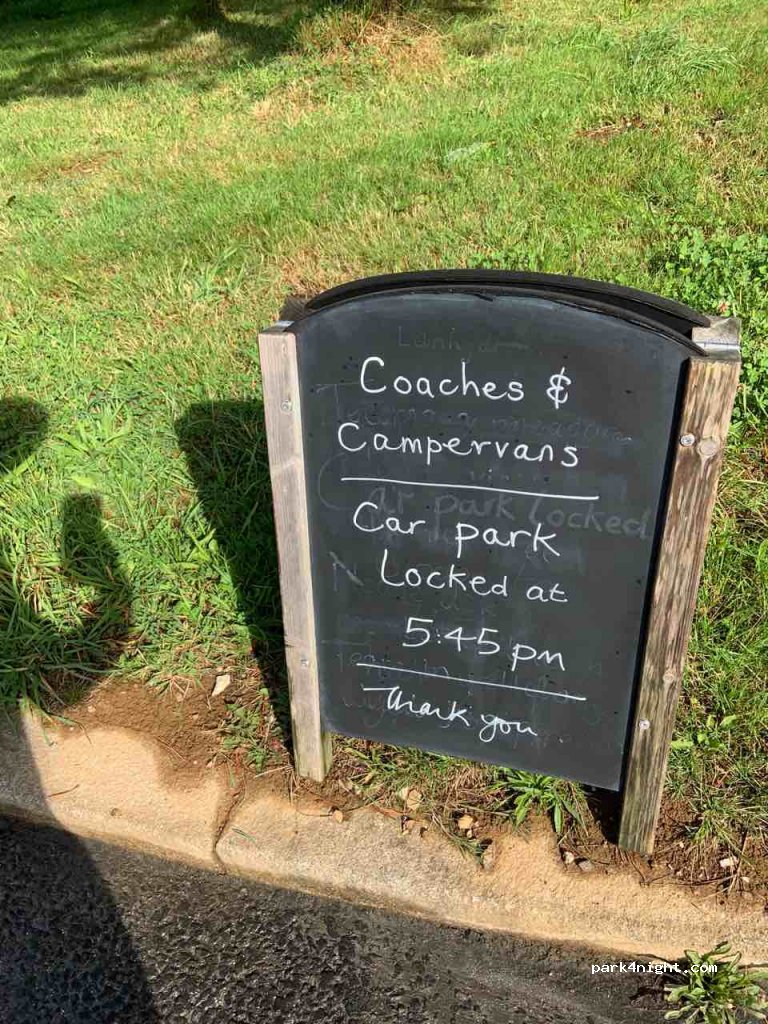 Coaches &
Campervans
Car park
Locked at
5:45 pm
Thank you
park4night.com